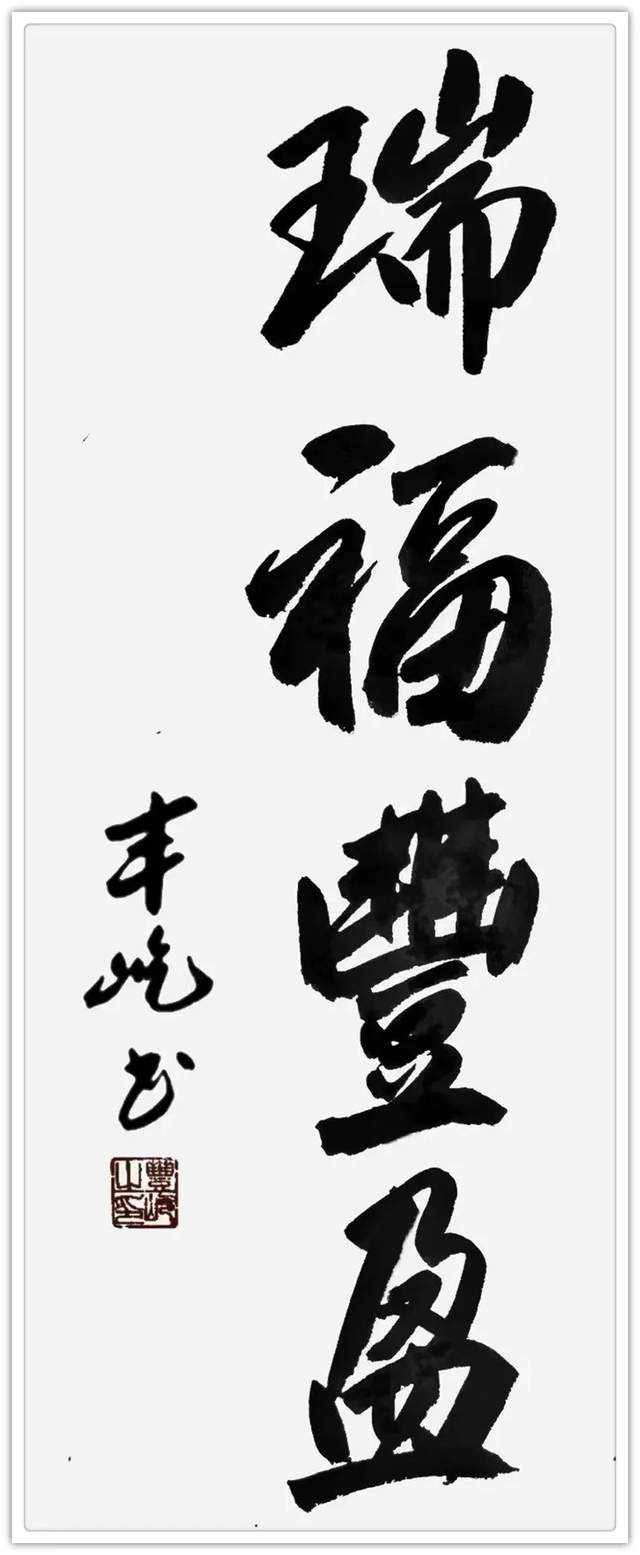 瑞福豐盈
丰屹书
豐屹之印